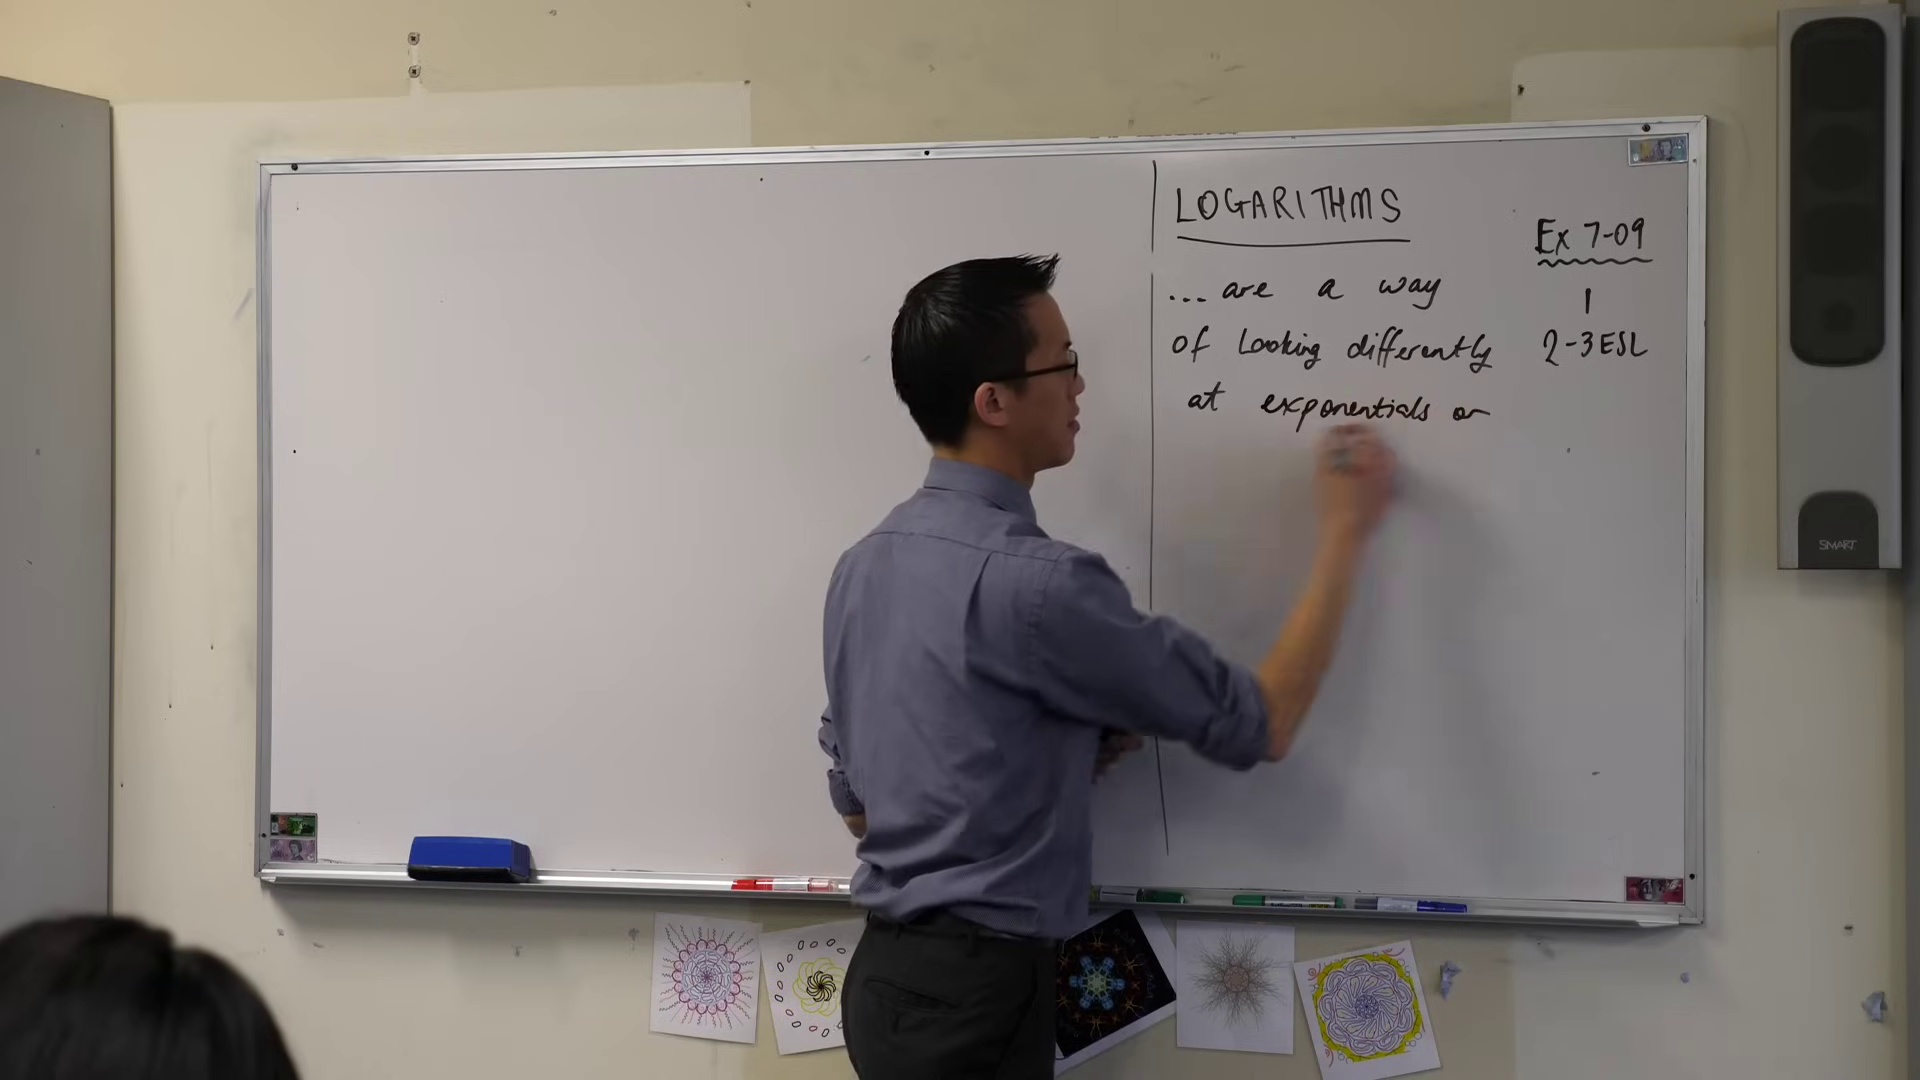 LOGARITHMS
... are a way
of looking differently
at exponentials or
Ex 7-09
1
2-3ESL
SMART